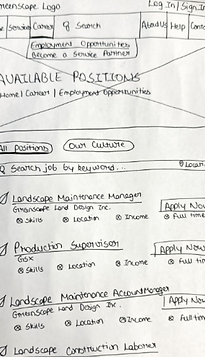 Greenscape Logo Log In/Sign
e Services Career Search About Us Help Conta
Employment Opportunities
Become a Service Partner
AVAILABLE POSITIONS
Home | Career | Employment Opportunities
All Positions Our Culture
Search job by keyword... Locat
Landscape Maintenance Manager
Greenscape Land Design Inc. Apply Now
Skills Location Income Full time
Production Supervisor Apply Now
GSX
Skills Location Income Full t
Landscape Maintenance Account Manager
GreenScape Land Design Inc. Apply Now
Skills Location Income Full tim
Landscape Construction Laborer